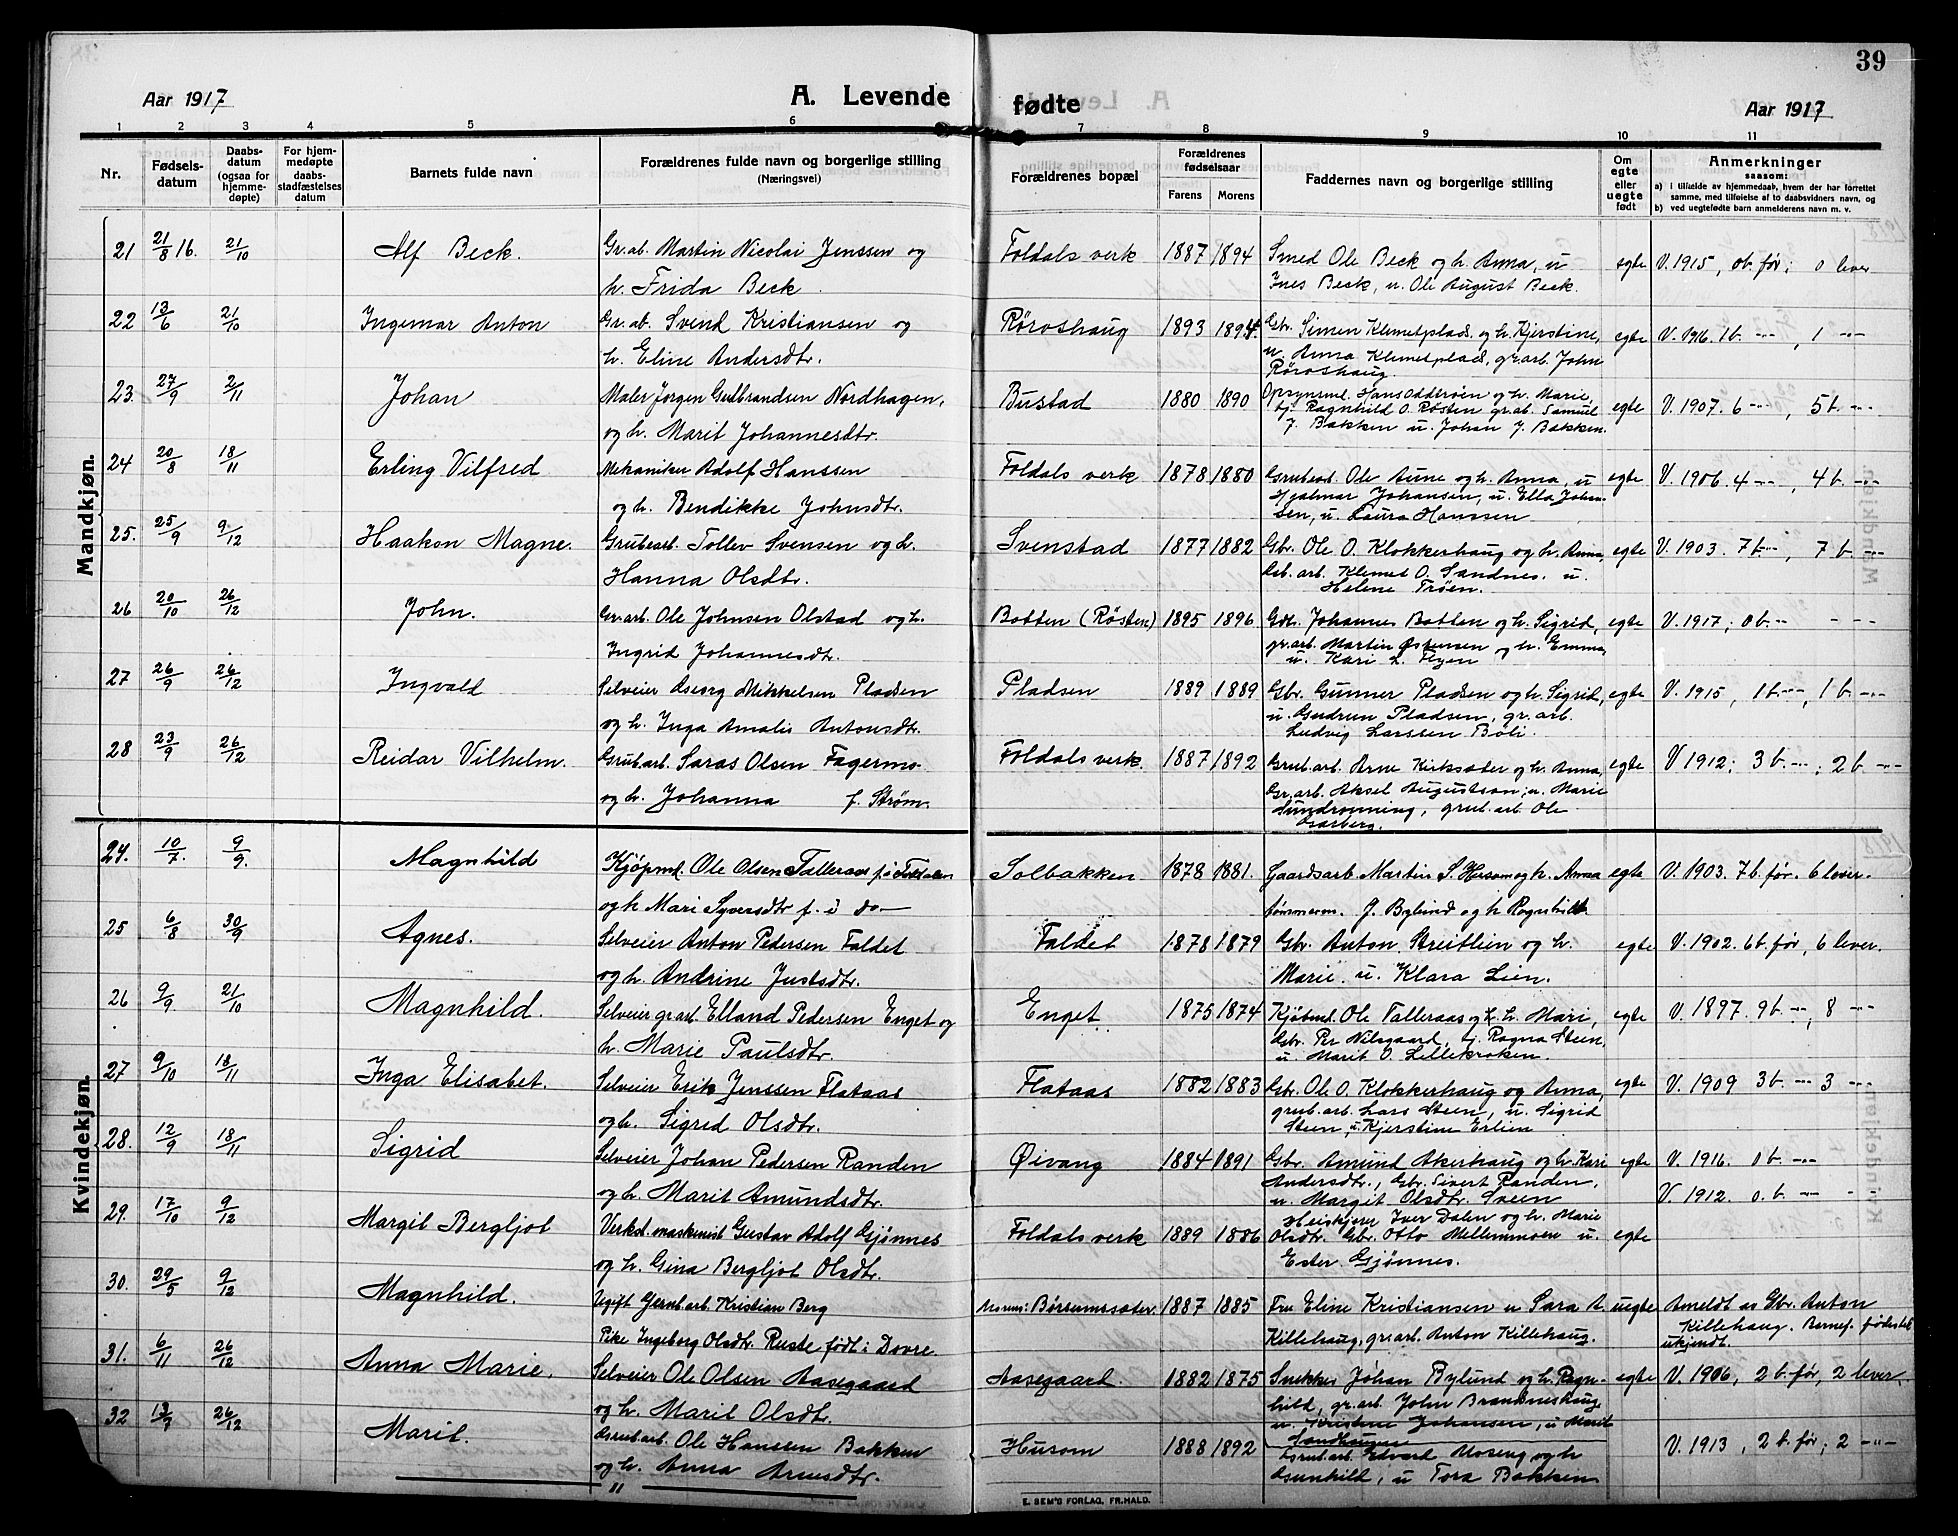 39
Aar 1917
A. Levende
fødte
Aar 1917
1 2 3 4 5 6 7 8 9 10 11
Nr.
Fødsels-
datum
Daabs-
datum
(ogsaa for
hjemme-
døpte)
For hjem-
medøpte
daabs-
stadfæstelses
datum
Barnets fulde navn
Forældrenes fulde navn og borgerlige stilling
(Næringsvei)
Forældrenes bopæl
Forældrenes
fødselsaar
Farens Morens
Faddernes navn og borgerlige stilling
Om
egte
eller
uegte
født
Anmerkninger
saasom:
a) i tilfælde av hjemmedaab, hvem der har forrettet
samme, med tilføielse av to daabsvidners navn, og
b) ved uegtefødte barn anmelderens navn m. v.
Mandkjøn.
21 21/8 16. 21/10 Alf Beck. Gr.ab. Martin Nicolai Jenssen og Foldals verk 1887 1894 Smed Ole Beck og h. Anna, u egte V. 1915, ob. før; 0 lever
h. Frida Beck. Ines Beck, u. Ole August Beck.
22 13/6 21/10 Ingemar Anton Gr.ab. Svend Kristiansen og Røroshaug 1893 1894. Gbr. Simen Klemetplads, og h. Kjerstine, egte V. 1916. 1b. -"-, 1 -"-
h. Eline Andersdtr. u. Anna Klemetplads, gr.arb. John
Røroshaug.
23. 27/9 2/11 Johan Maler Jørgen Gudbrandsen Nordhagen, Bustad 1880 1890 Opsynsml. Hans Oddtrøen og h. Marie, egte V. 1907. 6 -"-, 5 b. -"-
og h. Marit Johannesdtr. tj. Ragnhild O. Røsten gr.ab. Samuel
J. Bakken u. Johan J. Bakken.
24 20/8 18/11 Erling Vilfred Mekaniker Adolf Hanssen Foldals verk 1878 1880 Grubearb. Ole Aune og h. Anna, u egte V. 1906. 4 -"-, 4 b. -"-
og h. Bendikke Johnsdtr. Hjalmar Johansen, u. Ella Johan-
sen, u. Laura Hanssen
25. 25/9 9/12 Haakon Magne. Grubarb. Tollev Svensen og h. Svenstad 1877 1882 Gbr. Ole O. Klokkerhaug og h. Anna, egte V. 1903. 7 b -"-, 7 b -"-
Hanna Olsdtr. Gb. arb. Klemet O. Sandnes. u.
Helene Trøen.
26 20/10 26/12 John. Gr.arb. Ole Johnsen Olstad og h. Botten (Røsten) 1895 1896 Gdb. Johannes Botten og h. Sigrid, egte V. 1917; 0 b. -"- - -"-
Ingrid Johannesdtr. gr.arb. Martin Østensen og h. Emma,
u. Kari L. Flyen
27 26/9 26/12 Ingvald Selveier Georg Mikkelsen Pladsen Pladsen 1889 1889 Gbr. Gunner Pladsen og h. Sigrid, egte V. 1915, 1 b -"-, 1 b. -"-
og h. Inga Amalie Antonsdtr. u. Gudrun Pladsen, gr.arb.
Ludvig Larssen Bøli.
28 23/9 26/12 Reidar Vilhelm. Grub.arb. Saras Olsen Fagermo Foldals verk. 1887 1892 Grub.arb. Arne Kirksæter og h. Anna, egte V 1912; 3 b. -"-; 2 b -"-
og h. Johanna f. Strøm. Gr.arb. Aksel Augustson; u. Marie
Sundrønning, grub.arb. Ole
Aarberg.
Kvindekjøn.
24. 10/7. 9/9. Magnhild Kjøpml. Ole Olsen Talleraas f. i Foldalen Solbakken 1878 1881. Gaardsarb. Martin S. Husom og h. Anna egte V. 1903. 7 b. før. 6 lever.
og h Mari Syversdtr f. i do tømmerm. J. Bylund og h Ragnhild
25 6/8 30/9 Agnes. Selveier Anton Pedersen Faldet Faldet 1878 1879 Gbr. Anton Streitlien og h. egte V. 1902. 6b. før, 6 lever.
og h. Andrine Justsdtr. Marie. u. Klara Lien.
26 9/9 21/10 Magnhild. Selveier gr.arb. Elland Pedersen Enget og Enget 1875 1874 Kjøbml. Ole Talleraas og h. h. Mari, egte V. 1897. 9b. -"-, 8 -"-
h. Marie Paulsdtr. Gbr. Per Nilsgaard, tj. Ragna Steen,
u. Marit O. Lillekroken.
27 9/10 18/11 Inga Elisabet. Selveier Erik Jenssen Flataas Flataas 1882 1883 Gbr. Ole O. Klokkerhaug og Anna, egte V. 1909 3 b. -"- 3 -"-
og h. Sigrid Olsdtr. grub.arb. Lars Steen, u. Sigrid
Steen, u. Kjerstine Erlien
28. 12/9 18/11 Sigrid Selveier Johan Pedersen Randen Øivang 1884 1891 Gbr. Amund Akerhaug og h. Kari egte V. 1916. 0 b. -"-
og h. Marit Amundsdtr. Andersdtr., Gbr. Sivert Randen,
u. Margit Olsdtr. Sveen V. 1912. 0. b -"- - -
29. 17/10 9/12 Margit Bergljot Verkst. maskinist Gustav Adolf Gjønnes Foldals verk 1889 1886 Heiskjører Iver Dalen og h. Marie egte
og h. Gina Bergljot Olsdtr. Olsdtr. Gbr. Otto Mellemmoen u.
Ester Gjønnes.
30. 29/5 9/12 Magnhild. Ugift Jernb.arb. Kristian Berg Morens: Børsumssæter 1887 1885 Fru Eline Kristiansen u Sara A. uegte Ameldt av Gbr. Anton
Pike Ingeborg Olsdtr. Ruste født i Dovre. Killehaug, gr.arb. Anton Killehaug. Killehaug. Barnef. fødested
ukjendt.
31. 6/11 26/12 Anna Marie. Selveier Ole Olsen Aasegaard Aasegaard. 1882 1875 Snekker Johan Bylund og h. Ragn- egte V. 1906, 2 b. før, 2 lever.
og h. Marit Olsdtr. hild, gr.arb. John Brandneshaug
u. Kristine Johansen, u Marit
Sandhaugen
32 13/9 26/12 Marit. Grub.arb. Ole Hanssen Bakken Husom 1888 1892 Grub.arb. Edvard Moseng og h V. 1913, 2 b. før; 2 -"-
og h. Anna Arnesdtr. Gunhild, u Tora Bakken
E. SEM'S FORLAG, FR.HALD.